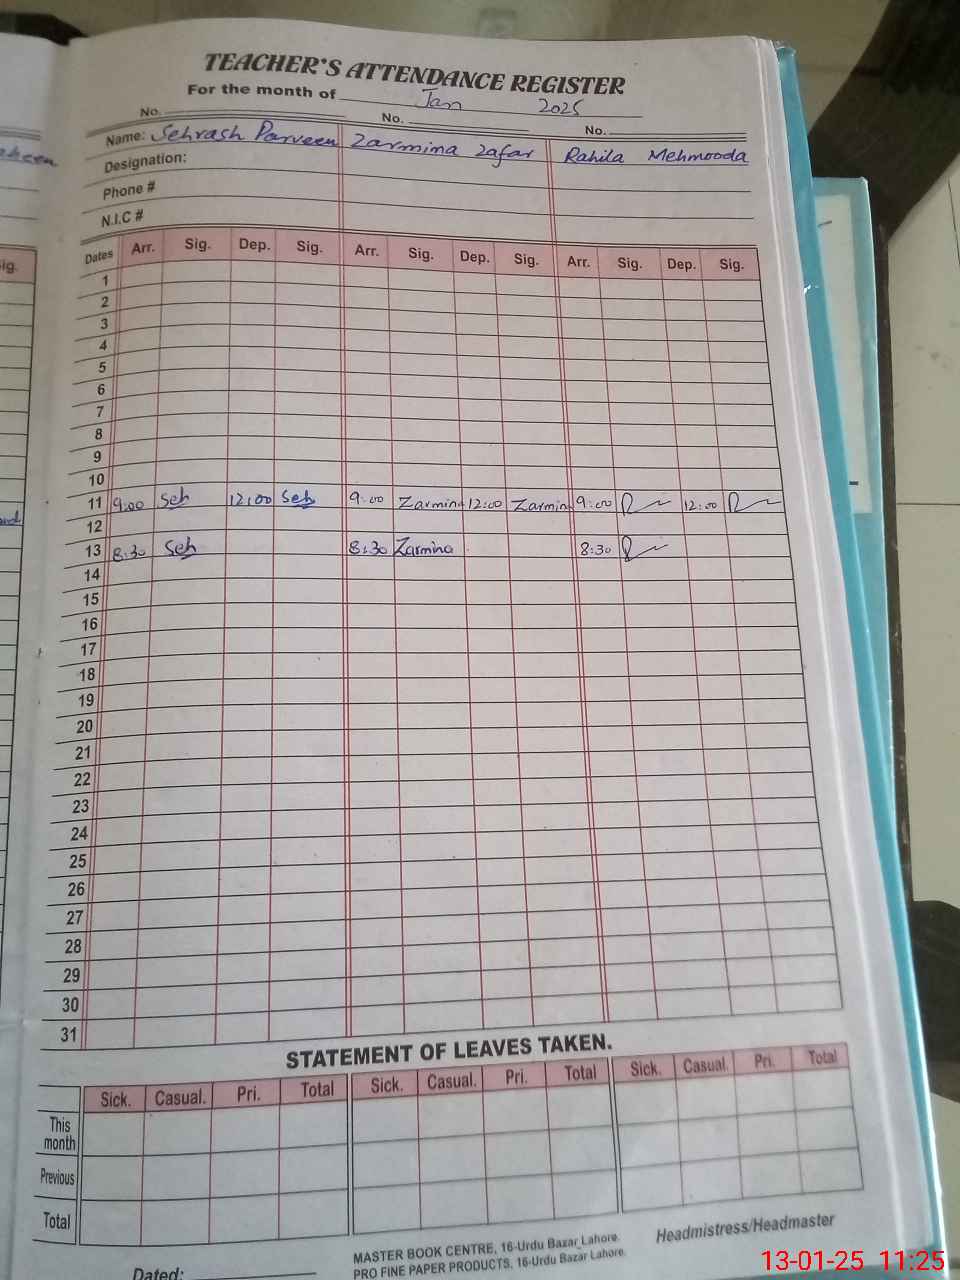 TEACHER'S ATTENDANCE REGISTER
For the month of Jan 2025
No. No. No.
Name: Sehrash Parveen Zarmina Zafar Rahila Mehmooda
Designation:
Phone #
N.I.C #
Dates Arr. Sig. Dep. Sig. Arr. Sig. Dep. Sig. Arr. Sig. Dep. Sig.
1
2
3
4
5
6
7
8
9
10
11 9:00 Seh 12:00 Seh 9:00 Zarmina 12:00 Zarmina 9:00 12:00
12
13 8:30 Seh 8:30 Zarmina 8:30
14
15
16
17
18
19
20
21
22
23
24
25
26
27
28
29
30
31
STATEMENT OF LEAVES TAKEN.
Sick. Casual. Pri. Total Sick. Casual. Pri. Total Sick. Casual. Pri. Total
This month
Previous
Total
Dated:
MASTER BOOK CENTRE, 16-Urdu Bazar Lahore.
PRO FINE PAPER PRODUCTS, 16-Urdu Bazar Lahore.
Headmistress/Headmaster
13-01-25 11:25